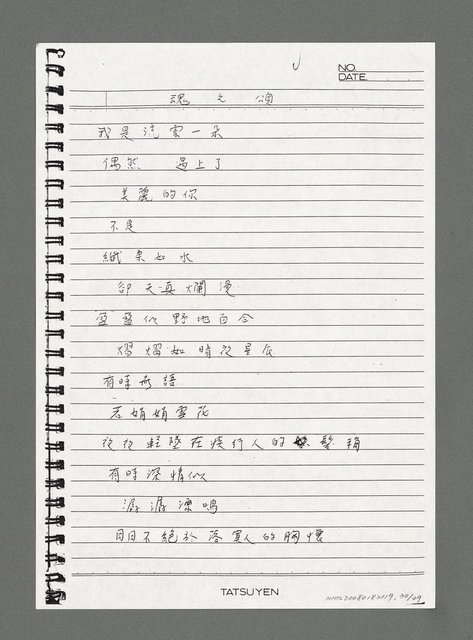 NO.
DATE
魂之頌
我是流雲一朵
偶然 遇上了
美麗的你
不是
纖柔如水
卻天真爛漫
盈盈似野地百合
熠熠如時夜星辰
有時無語
若娟娟雪花
夜夜輕墜在疾行人的髮梢
有時深情似
潺潺溪鳴
日日不絕於落寞人的胸懷
TATSUYEN